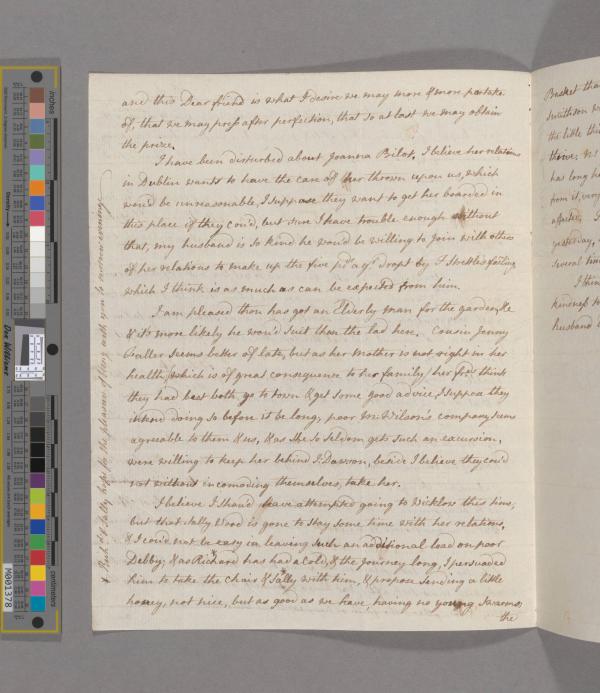 and this Dear friend is what I desire we may more & more partake
of, that we may press after perfection, that so at last we may obtain
the prize.
I have been disturbed about Joanna Bilot. I believe her relations
in Dublin wants to have the care of her thrown upon us, which
wou'd be unreasonable, I suppose they want to get her boarded in
this place if they cou'd, but sure I have trouble enough without
that, my husband is so kind he wou'd be willing to join with other
of her relations to make up the five pds. a yr. dropt by
which I think is as much as can be expected from him.
I am pleased thou has got an Elderly man for the garden, He
& it's more likely he wou'd suit than the lad here. Cousin Jenny
Fuller seems better of late, but as her Mother is not right in her
health (which is of great consequence to her family) her frds. think
they had best both go to town & get some good advice, I suppose they
intend doing so before it be long; poor M: Wilson's company seems
agreeable to them & us, & as she so seldom gets such an excursion,
were willing to keep her behind J: Dawson, beside I believe they cou'd
not without incomoding themselves, take her.
I believe I shou'd have attempted going to Wicklow this time,
but that Sally Wood is gone to stay some time with her relations,
& I cou'd not be easy in leaving such an additional load on poor
Debby; & as Richard has had a Cold, & the journey long, I persuaded
him to take the Chair & Sally with him, & propose sending a little
honey, not nice, but as good as we have, having no young Swarms,
the
& Sally hope for the pleasure of being with you to morrow evening
Basket tha
the little thi
thrive; as
has long he
from it, very
yesterday,
several time
I thin
kindness to
husband
inches
centimeters
Don Williams
M001378